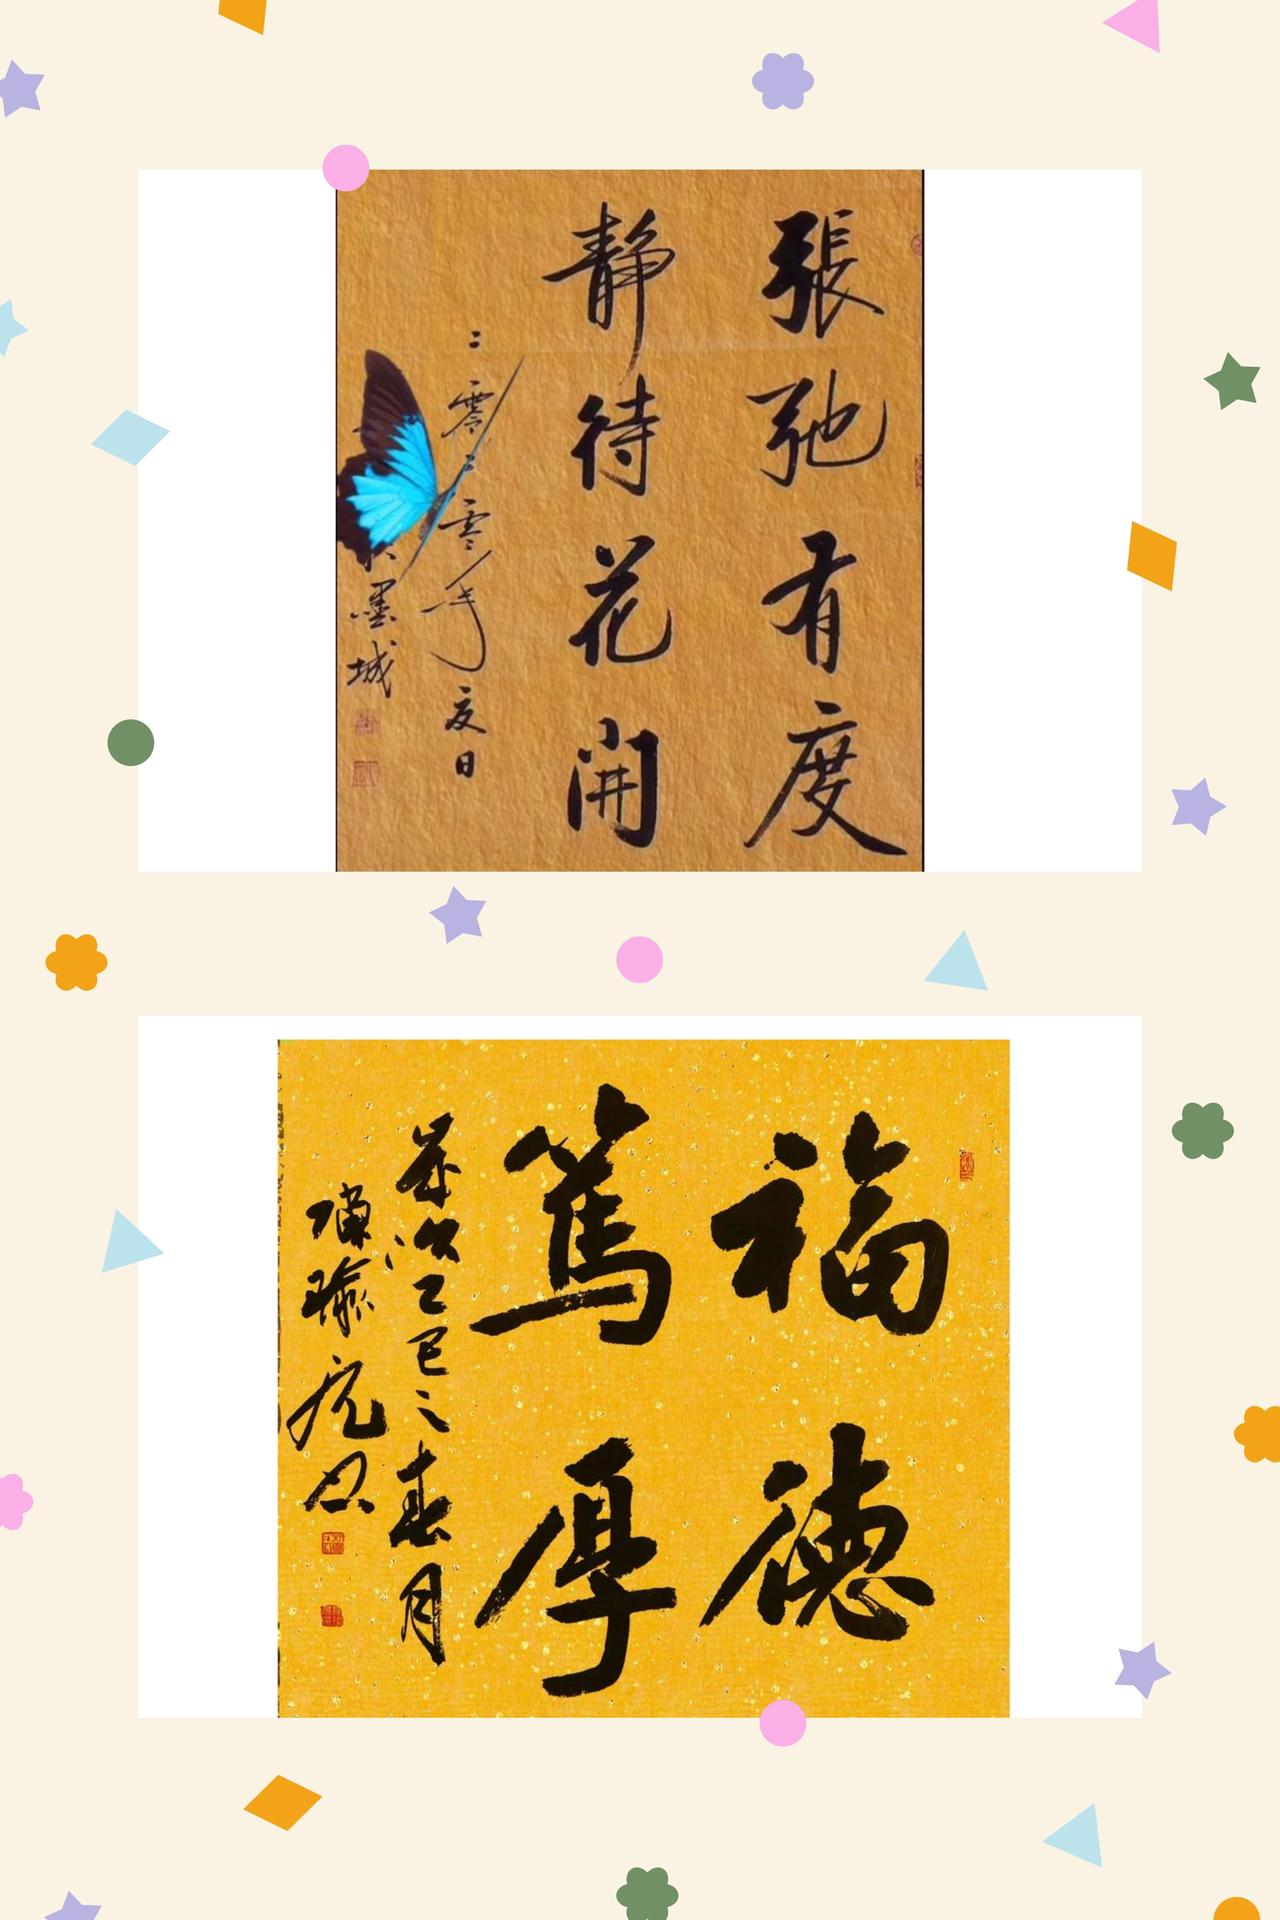 張弛有度
静待花開
二零二零年夏日
墨城
福德
篤厚
歲次乙巳之春月